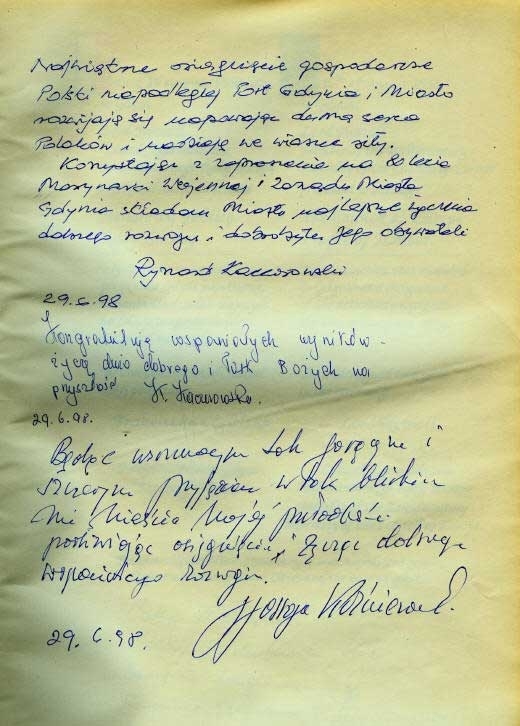 Największe osiągnięcie gospodarcze
Polski niepodległej Port Gdynia i Miasto
rozwijają się napawając dumą serca
Polaków i nadzieją we własne siły.
Korzystając z zaproszenia na 80 lecie
Marynarki Wojennej i Zarządu Miasta
Gdynia składam Miastu najlepsze życzenia
dobrego rozwoju i dobrobytu Jego obywateli
Ryszard Kaczorowski
29.6.98
Kongratuluję wspaniałych wyników -
życzę dużo dobrego i łask Bożych na
przyszłość K. Kaczorowska.
29.6.98.
Będąc wzruszonym tak gorącym i
przyjęciem w tak bliskim
mi mieście mojej młodości
podziwiając osiągnięcia, życząc dobrego
wspaniałego rozwoju.
29.6.98.